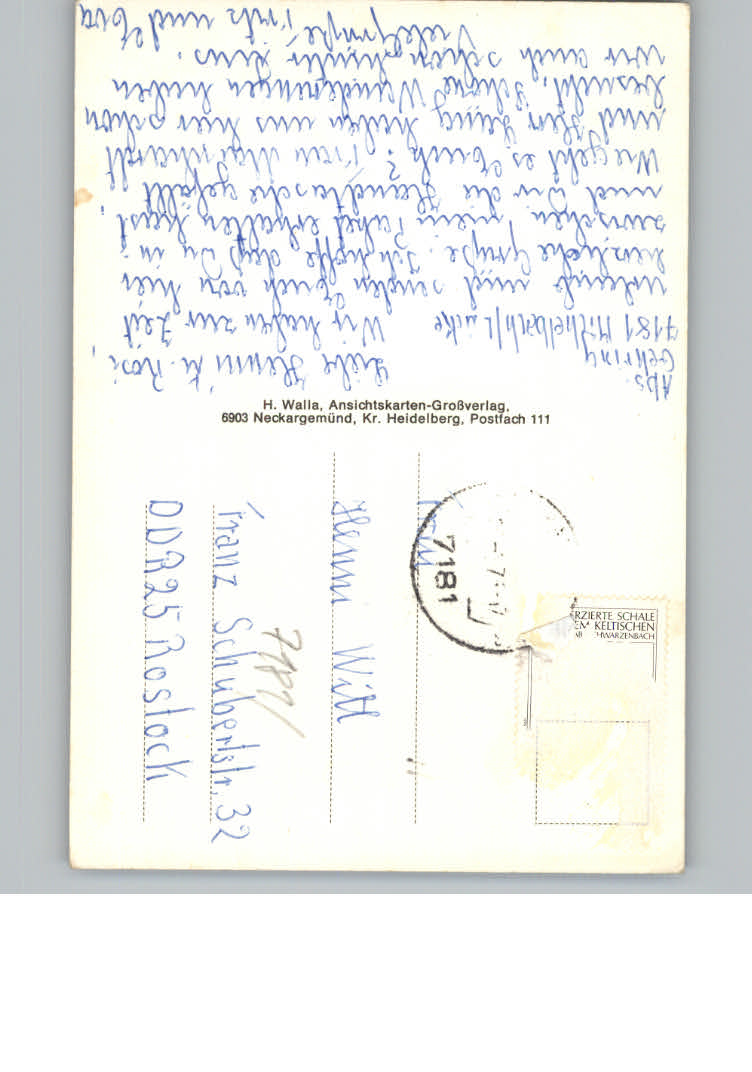 Abs.
Gehring
7181 Michelbach/Lücke
Liebe Henni u. Rosi,
Wir haben zur Zeit
Urlaub und senden Euch von hier
herzliche Grüße. Ich hoffe daß Du in-
zwischen mein Paket erhalten hast
und Dir die Handtasche gefällt.
Wie geht es Euch? Frau
und Herr haben uns hier schon
besucht. Schöne Wanderungen haben
wir auch schon hinter uns.
Viele Grüße Fritz und Eva
H. Walla, Ansichtskarten-Großverlag,
6903 Neckargemünd, Kr. Heidelberg, Postfach 111
Frau
Henni Witt
Franz Schubertstr. 32
DDR 25 Rostock
7181
7181
RZIERTE SCHALE
EM KELTISCHEN
AB HWARZENBACH